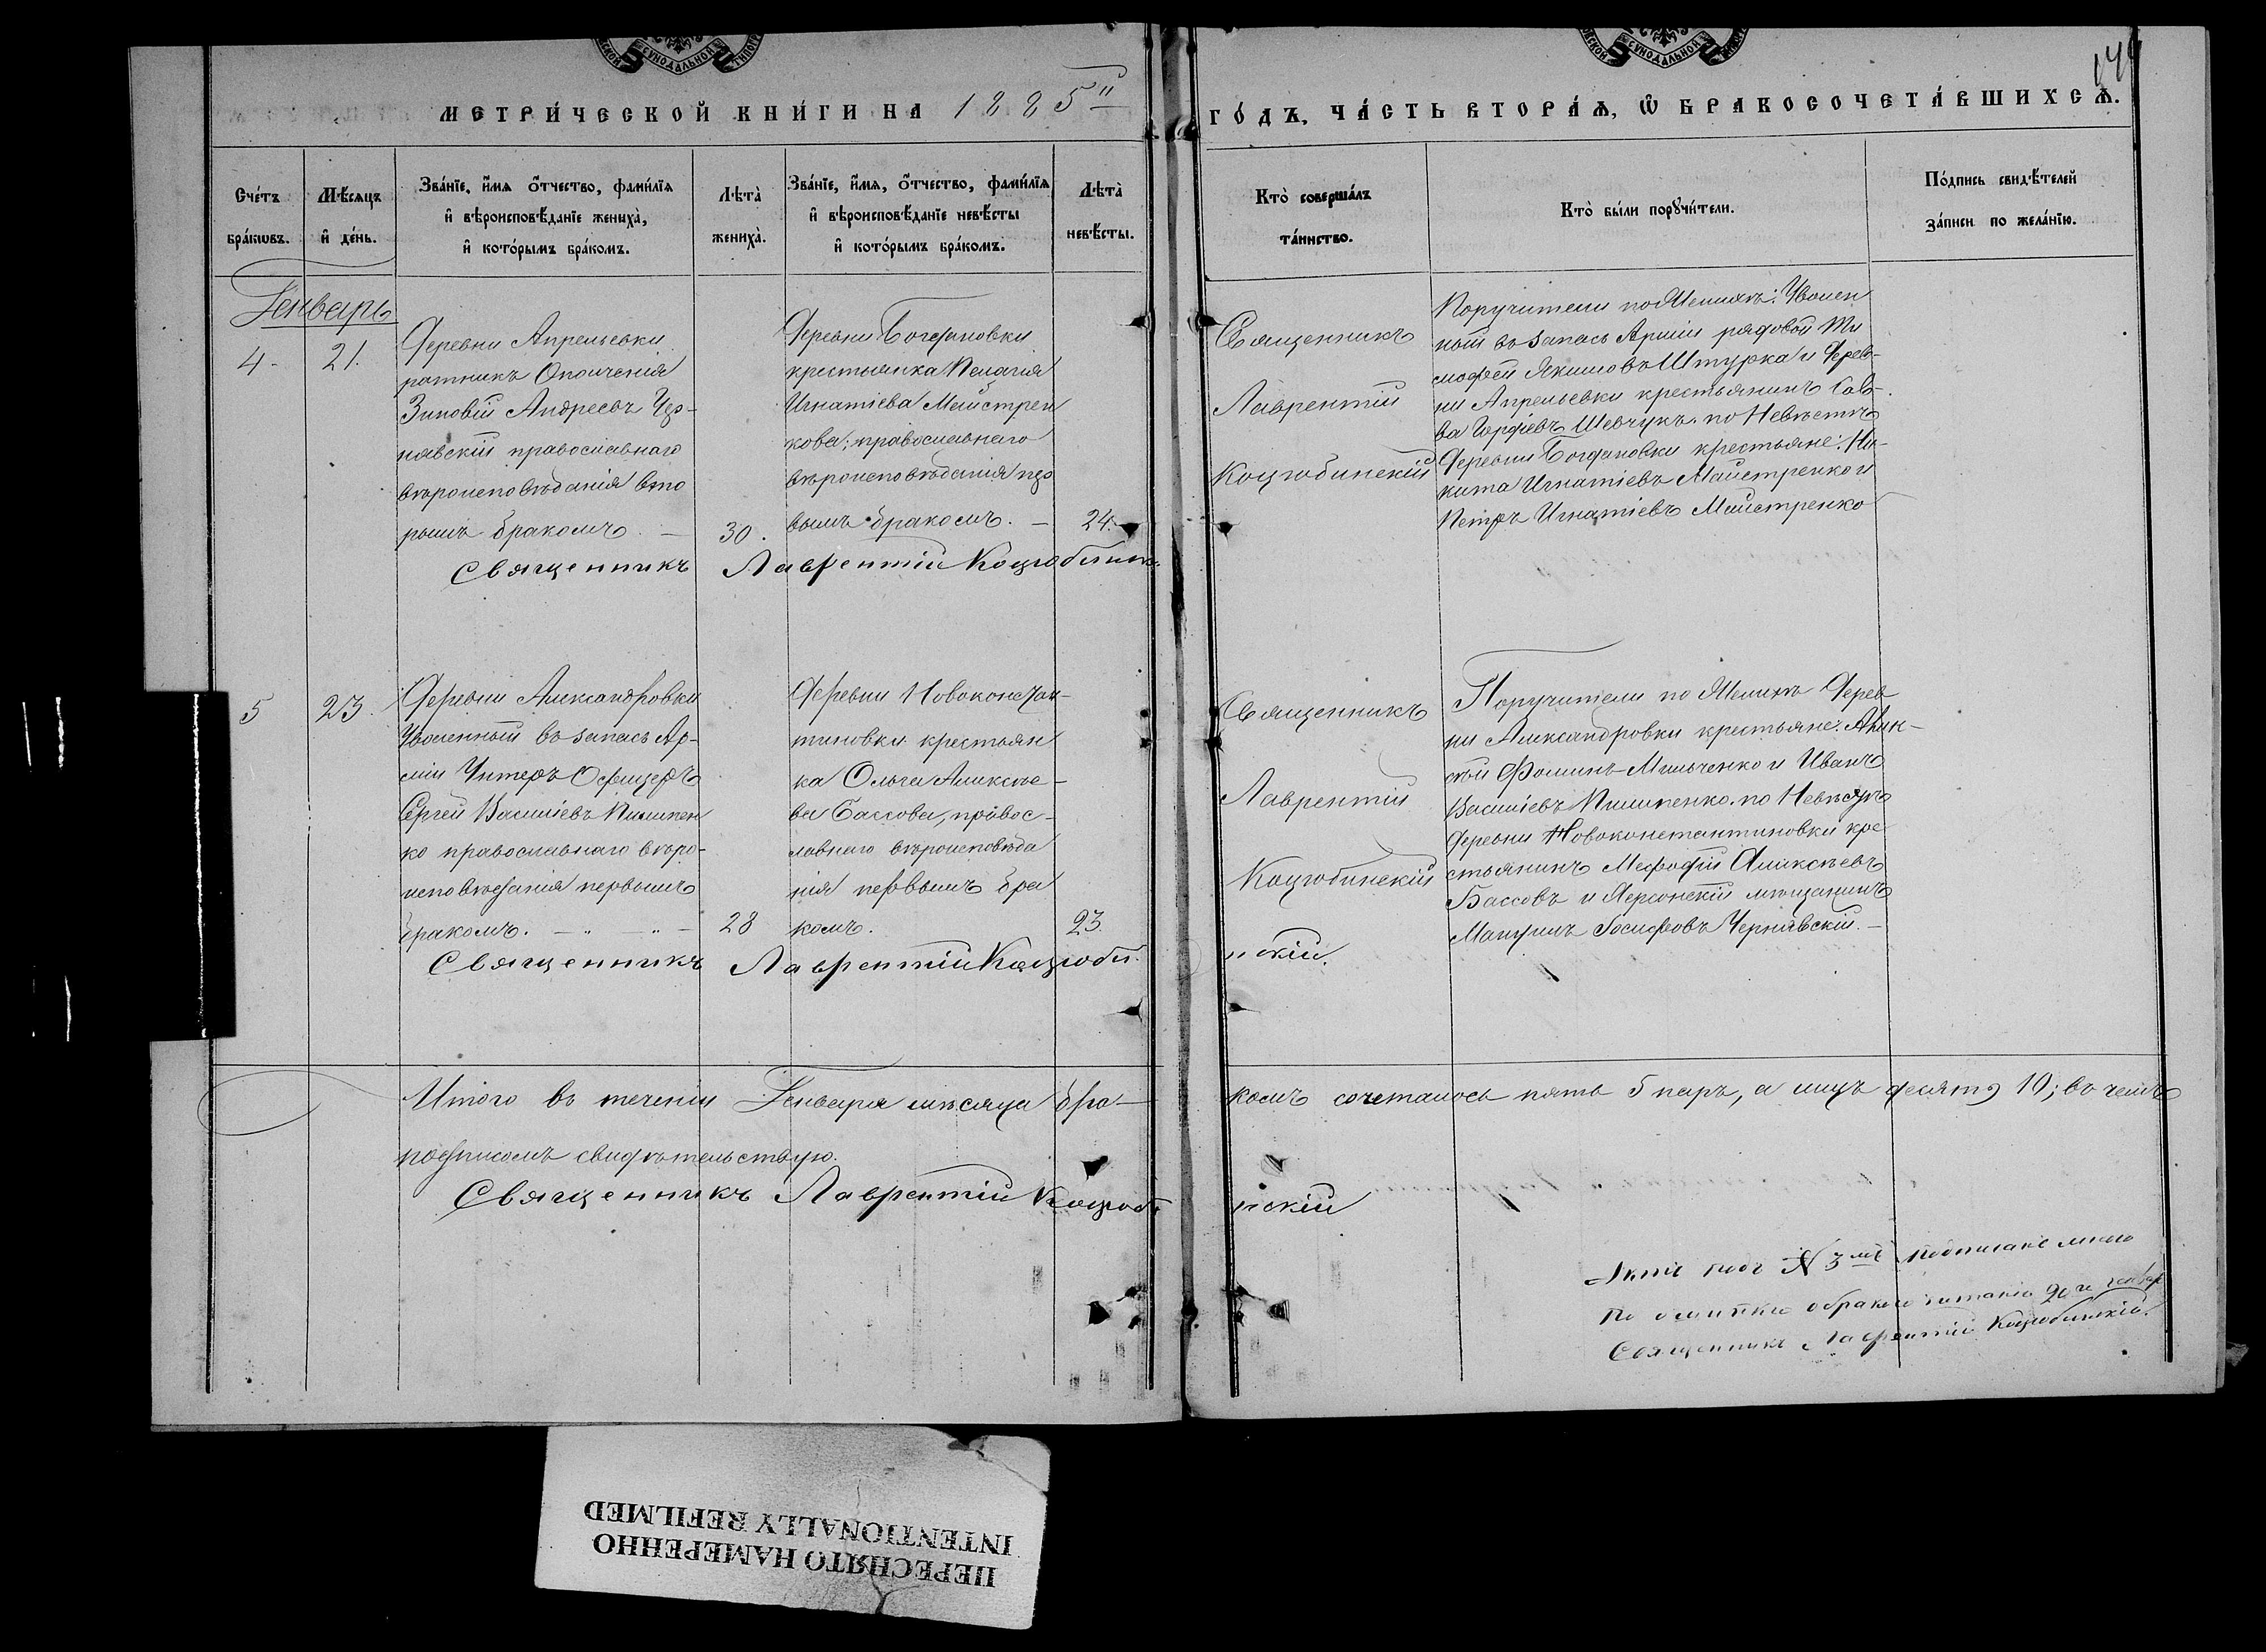 МЕТРИ́ЧЕСКОЙ КНИ́ГИ НА 1885й
ГО́ДЪ, ЧА́СТЬ ВТОРА́Ѧ, Ѡ БРАКОСОЧЕТА́ВШИХСѦ.
Сче́тъ
бра́кѡвъ.
Мѣ́сяцъ
и҆ де́нь.
Зва́нїе, и҆́мѧ ѻ҆́тчество, фами́лїѧ
и҆ вѣроисповѣ́данїе жениха̀,
и҆ кото́рымъ бра́комъ.
Лѣта̀
жениха̀.
Зва́нїе, и҆́мѧ, ѻ҆́тчество, фами́лїѧ
и҆ вѣроисповѣ́данїе невѣ́сты
и҆ кото́рымъ бра́комъ.
Лѣта̀
невѣ́сты.
Кто̀ соверша́лъ
та́инство.
Кто̀ бы́ли порꙋчи́тели.
По́дпись свидѣ́телей
за́писи по жела́нїю.
Генварь
4.
21.
Деревни Апрельевки
ратникъ Ополченія
Зиновій Андреевъ Чер-
нявскій православнаго
вѣроисповѣданія вто
рымъ бракомъ. —
30.
Деревни Богдановки
крестьянка Пелагія
Игнатіева Майстрен
кова; православнаго
вѣроисповѣданія пер
вымъ бракомъ. —
24.
Священникъ Лаврентій Коцюбинск.
Священникъ
Лаврентій
Коцюбинскій
Поручители по Женихѣ: Уволен
ный въ запасъ Арміи рядовой Ти
мофей Якимовъ Штурка и Дерев-
ни Апрельевки крестьянинъ Сав-
ва Гордіевъ Шевчукъ. по Невѣстѣ
Деревни Богдановки крестьяне: Ни-
кита Игнатіевъ Майстренко и
Петръ Игнатіевъ Майстренко
5
23.
Деревни Александровки
Уволенный въ запасъ Ар-
міи Унтеръ Офицеръ
Сергей Василіевъ Пилипен
ко православнаго вѣро-
исповѣданія первымъ
бракомъ. — „ — „ —
28
Деревни Новоконстан-
тиновки крестьян
ка Ольга Алексѣе-
ва Бассова, правос-
лавнаго вѣроисповѣда
нія первымъ бра
комъ.
23
Священникъ Лаврентій Коцюби
нскій.
Священникъ
Лаврентій
Коцюбинскій
Поручители по Женихѣ Дерев
ни Александровки крестьяне:
Фоминъ Мильченко и Иванъ
Василіевъ Пилипенко. по Невѣстѣ
Деревни Новоконстантиновки кре
стьянинъ Мефодій Алексѣевъ
Бассовъ и Херсонскій мѣщанинъ
Іосифовъ Чернявскій. —
Итого въ теченіи Генваря мѣсяца бра-
комъ сочеталось пять 5 паръ, а лицъ десять 10; въ чемъ
подписомъ свидѣтельствую.
Священникъ Лаврентій Коцюби
нскій
подъ № 3мъ подписанъ мною
по ошибкѣ
Священникъ Лаврентій Коцюбинскій.
ПЕРЕСНЯТО НАМЕРЕННО
INTENTIONALLY REFILMED